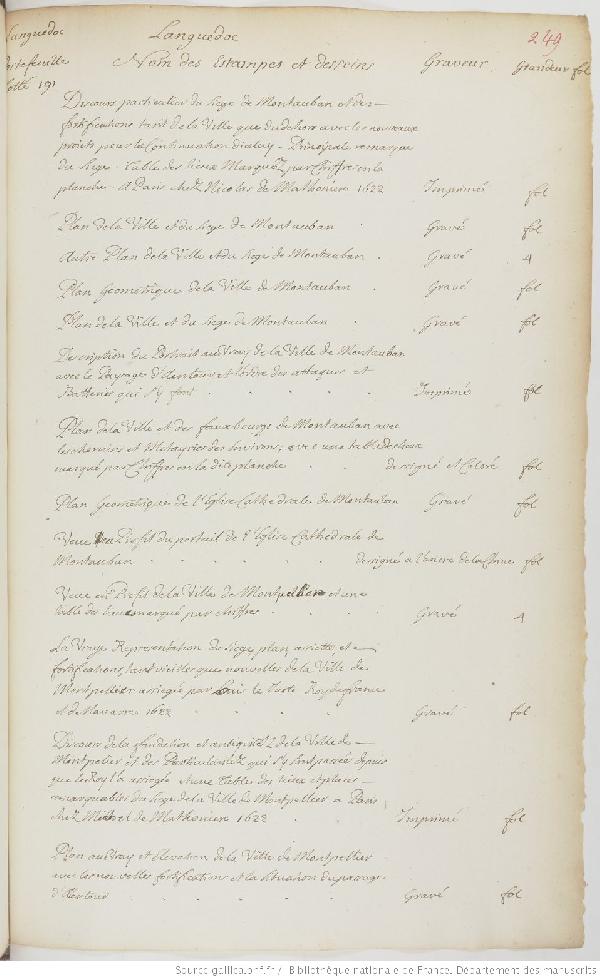 Languedoc
portefeuille
cotté 191
Languedoc
249
Nom des Estampes et desseins Graveur Grandeur fol
Discours particulier du siege de Montauban et des
fortifications tant de la Ville que du dehors avec les nouveaux
projets pour la Continuation diceluy - Principale remarque
du siege - table des lieux Marquéz par Chiffres en la
planche - A Paris chez Nicolas de Mathoniere 1622 Imprimés fol
Plan de la Ville et du siege de Montauban Gravé fol
Autre Plan de la Ville et du siege de Montauban Gravé 4
Plan Geometrique de la Ville de Montauban Gravé fol
Plan de la Ville et du siege de Montauban Gravé fol
Description du Portrait au Vray de la Ville de Montauban
avec le Paysage d'Alentour et l'ordre des attaques et
Batteries qui s'y font Imprimés fol
Plan de la Ville et des fauxbourgs de Montauban avec
les chemins et Metayries des Environs, avec une table des lieux
marqué par Chiffres en la dite planche dessigné et Coloré fol
Plan Geometrique de l'Eglise Cathedrale de Montauban Gravé fol
Veue en Profil du portail de l'Eglise Cathedrale de
Montauban dessigné a l'encre de la Chine fol
Veue en Profil de la Ville de Montpellier et une
table des lieux marqué par chiffres Gravé 4
La Vraye Representation du siege plan, assiette, et
fortifications, tant vieilles que nouvelles de la Ville de
Montpellier assiegé par Louis le Juste Roy de france
et de Navarre 1622 Gravé fol
Discours de la fondation et antiquitéz de la Ville de
Montpelier et des Particularitéz qui s'y sont passée depuis
que le Roy l'a assiegée et une Table des lieux et places
remarquables du siege de la Ville de Montpellier a Paris
chez Michel de Mathoniere 1622 Imprimé fol
Plan au Vray et Elevation de la Ville de Montpellier
avec les nouvelles fortifications et la situation du paysage
d'Alentour Gravé fol
Source gallica.bnf.fr / Bibliothèque nationale de France. Département des manuscrits